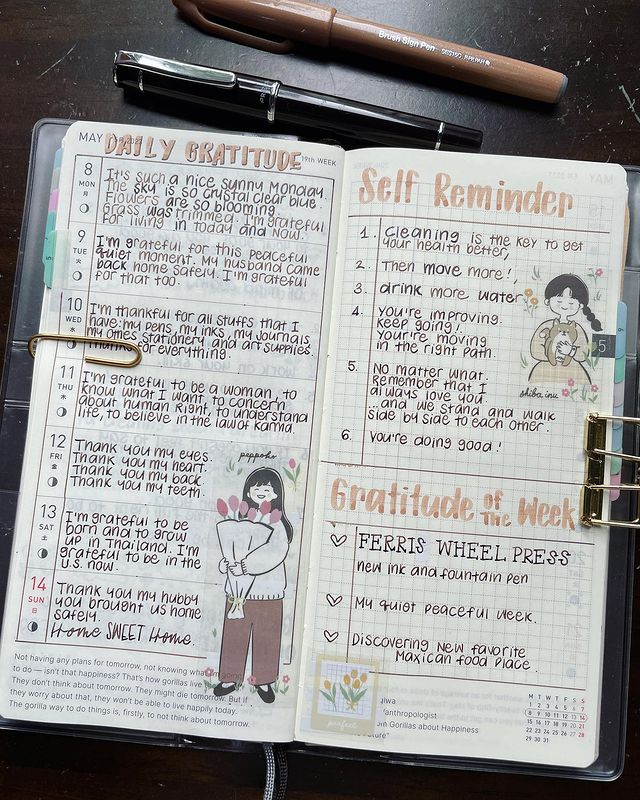 Brush Sign Pen
MAY
DAILY GRATITUDE
19th WEEK
8
MON
It's such a nice sunny Monday.
The sky is so crystal clear blue.
Flowers are so blooming.
Grass was trimmed. I'm grateful
for living in today and now.
9
TUE
火
I'm grateful for this peaceful
quiet moment. My husband came
back home safely. I'm grateful
for that too.
10
WED
水
I'm thankful for all stuffs that I
have: my pens, my inks, my journals
my omes stationery and art supplies.
Thanks for everything.
11
THU
木
I'm grateful to be a woman, to
know what I want, to concern
about human Right, to understand
life, to believe in the law of karma.
12
FRI
金
Thank you my eyes.
Thank you my heart.
Thank you my back.
Thank you my teeth.
peppoho
13
SAT
土
I'm grateful to be
born and to grow
up in Thailand. I'm
grateful to be in the
U.S. now.
14
SUN
日
Thank you my hubby
you brought us home
safely.
Home SWEET Home.
Not having any plans for tomorrow, not knowing what I'm going
to do — isn't that happiness? That's how gorillas live
They don't think about tomorrow. They might die tomorrow. But if
they worry about that, they won't be able to live happily today.
The gorilla way to do things is, firstly, to not think about tomorrow.
Self Reminder
1. Cleaning is the key to get
your health better,
2. Then move more!,
3. drink more water
4. You're improving.
keep going!
You're moving
in the right path.
5. No matter what.
Remember that I
always love you.
and we stand and walk
side by side to each other.
6. You're doing good!
shiba inu
5
Gratitude of The Week
FERRIS WHEEL PRESS
new ink and fountain pen
My quiet peaceful week.
Discovering new favorite
Maxican food place.
perfect
aiwa
anthropologist
om Gorillas about Happiness
Future"
M T W T F S S
1 2 3 4 5 6 7
8 9 10 11 12 13 14
15 16 17 18 19 20 21
22 23 24 25 26 27 28
29 30 31